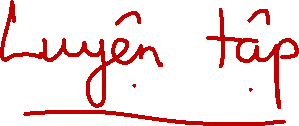 Luyện tập